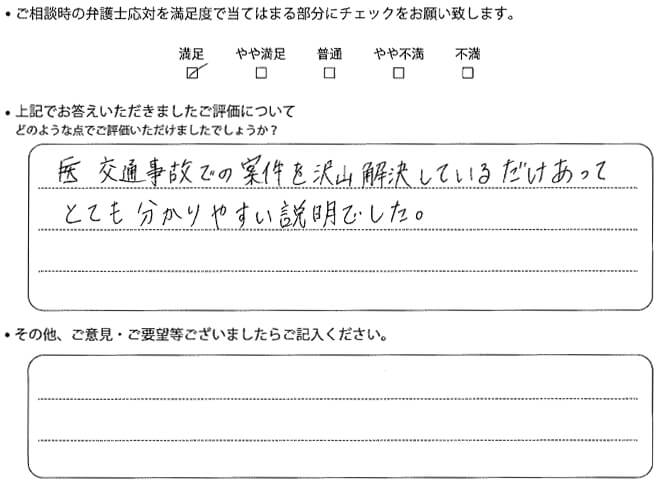 • ご相談時の弁護士応対を満足度で当てはまる部分にチェックをお願い致します。
満足 やや満足 普通 やや不満 不満
☑ ☐ ☐ ☐ ☐
• 上記でお答えいただきましたご評価について
どのような点でご評価いただけましたでしょうか？
交通事故での案件を沢山解決しているだけあって
とても分かりやすい説明でした。
• その他、ご意見・ご要望等ございましたらご記入ください。